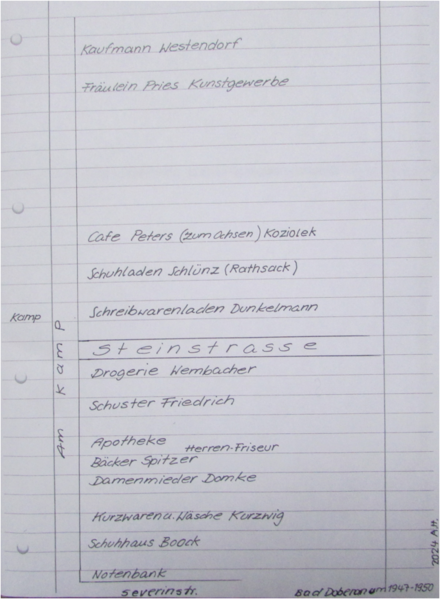 Kaufmann Westendorf
Fräulein Pries Kunstgewerbe
Cafe Peters (zum Ochsen) Koziolek
Schuhladen Schlünz (Rathsack)
Schreibwarenladen Dunkelmann
Kamp
Am Kamp
Steinstrasse
Drogerie Wembacher
Schuster Friedrich
Apotheke Herren-Friseur
Bäcker Spitzer
Damenmieder Domke
Kurzwaren u. Wäsche Kurzwig
Schuhhaus Boock
Notenbank
Severinstr.
Bad Doberan um 1947-1950
2024 A.H.